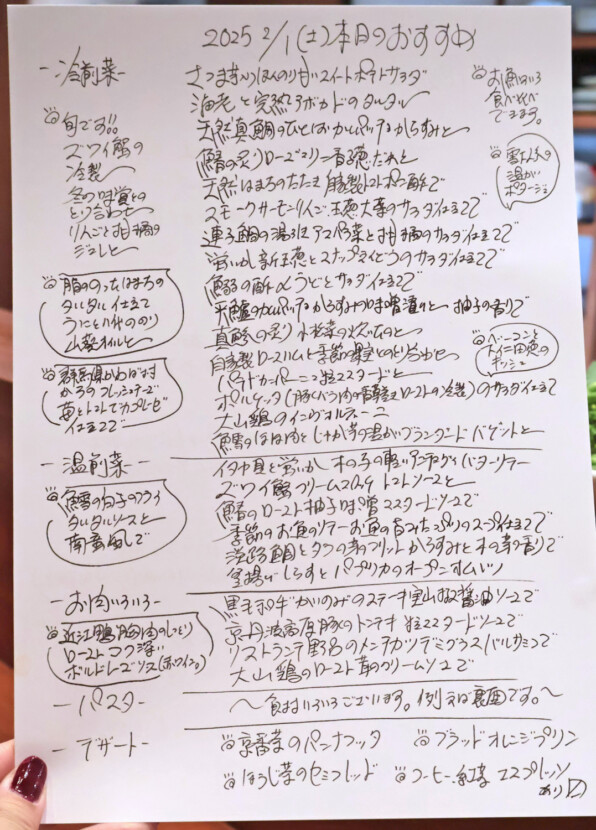 2025 2/1(土)本日のおすすめ
-冷前菜-
さつま芋のほんのり甘いスイートポテトサラダ
海老と完熟アボカドのタルタル
天然真鯛のひとくちカルパッチョ からすみと
鰆の炙り ローズマリー香る だれと
天然はまちのたたき 自家製トマトポン酢で
スモークサーモン りんご 玉葱 大葉のサラダ仕立てで
連子鯛の湯引き アスパラ菜と柑橘のサラダ仕立てで
蛍いか 新玉葱とスナップえんどうのサラダ仕立てで
の酢〆 うどとサラダ仕立てで
平鱸のカルパッチョ からすみの味噌漬けと 柚子の香りで
真鯵の炙り 水菜の
自家製ロースハムと季節の果実とのとり合わせ
パテドカンパーニュ 粒マスタードと
ポルケッタ(豚バラ肉の香草ローストの冷製)のサラダ仕立て
大山鶏のインヴォルティーニ
鱈のほほ肉とじゃが芋の温かいブランダード バゲットと
お魚いろいろ
食べ比べ
できます。
雪下人参の
温かい
ポタージュ
ベーコンと
キッシュ
旬です!!
ズワイ蟹の
冷製
冬の味覚との
とり合わせ
りんごと柑橘の
ジュレと
脂ののったはまちの
タルタル仕立て
うにと八代ののり
山葵オイルと
群馬県かわばた
からのフレッシュチーズ
苺とトマトでカプレーゼ
仕立てで
-温前菜-
イタヤ貝と蛍いか 木の子の軽いアンチョヴィバターソテー
ズワイ蟹クリームコロッケ トマトソースと
鰆のロースト 柚子味噌マスタードソースで
季節のお魚のソテー お魚の旨みたっぷりのスープ仕立てで
淡路鯛とタラの芽のフリット からすみと木の芽の香りで
釜揚げしらすとパプリカのオープンオムレツ
鱈の白子のフライ
タルタルソースと
南蛮風で
-お肉いろいろ-
黒毛和牛かいのみのステーキ 実山椒醤油ソースで
京丹波高原豚のトンテキ 粒マスタードソースで
リストランテ野呂のメンチカツ デミグラスバルサミコで
大山鶏のロースト 茸のクリームソースで
近江鴨胸肉のしっとり
ロースト コク深い
ボルドレーズソース(赤ワイン)
-パスタ-
〜食材いろいろございます。例えば裏面です。〜
-デザート-
京番茶のパンナコッタ
ブラッドオレンジプリン
ほうじ茶のセミフレッド
コーヒー、紅茶、エスプレッソ
あり〼